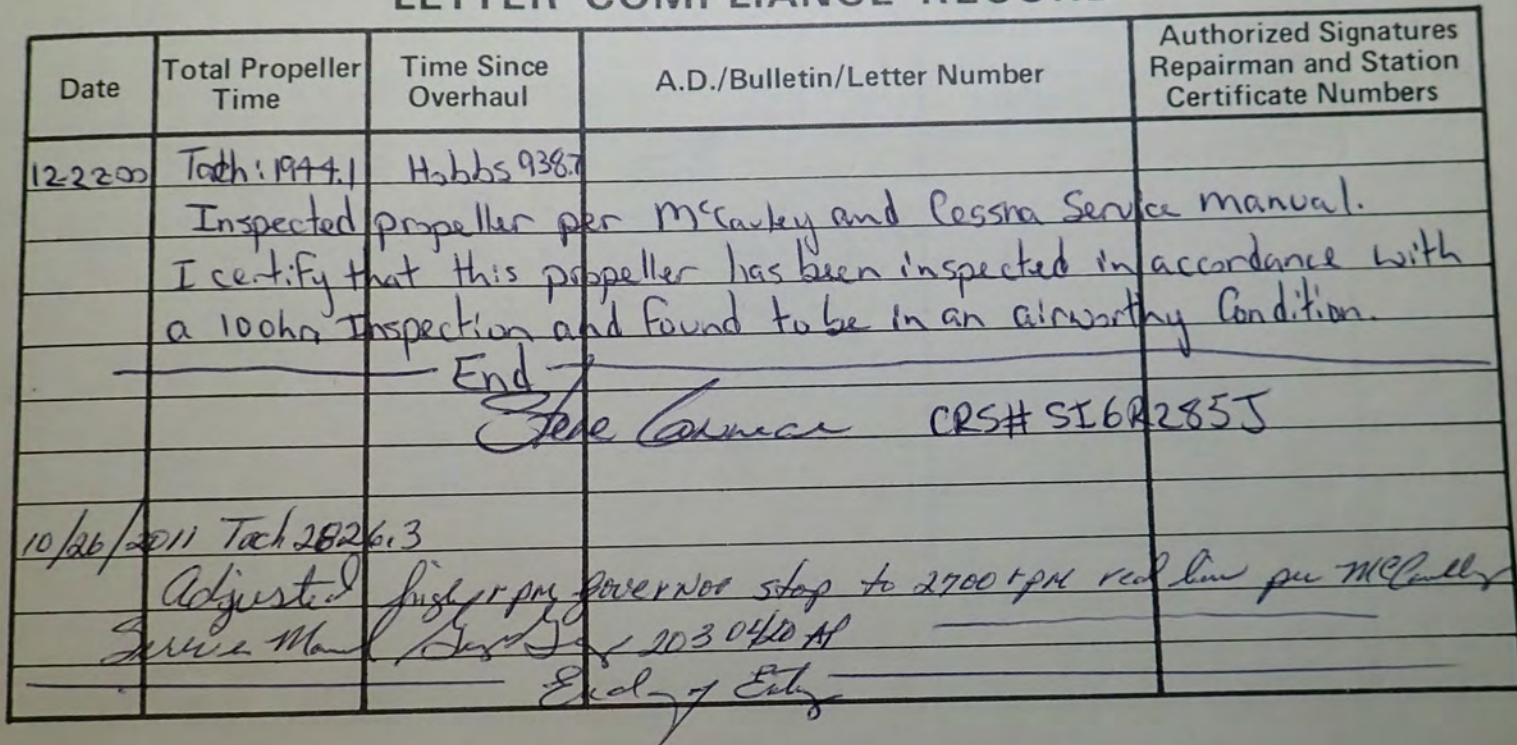 LETTER COMPLIANCE RECORD
Date
Total Propeller
Time
Time Since
Overhaul
A.D./Bulletin/Letter Number
Authorized Signatures
Repairman and Station
Certificate Numbers
12-22-00 Tach: 1944.1 Hobbs 938.7
Inspected propeller per McCauley and Cessna Service manual.
I certify that this propeller has been inspected in accordance with
a 100hr Inspection and found to be in an airworthy Condition.
End
Steve CRS# SI6R285J
10/26/2011 Tach 2826.3
Adjusted high rpm governor stop to 2700 rpm red line per McCauley
Service Manual 2030420 AP
End of Entry